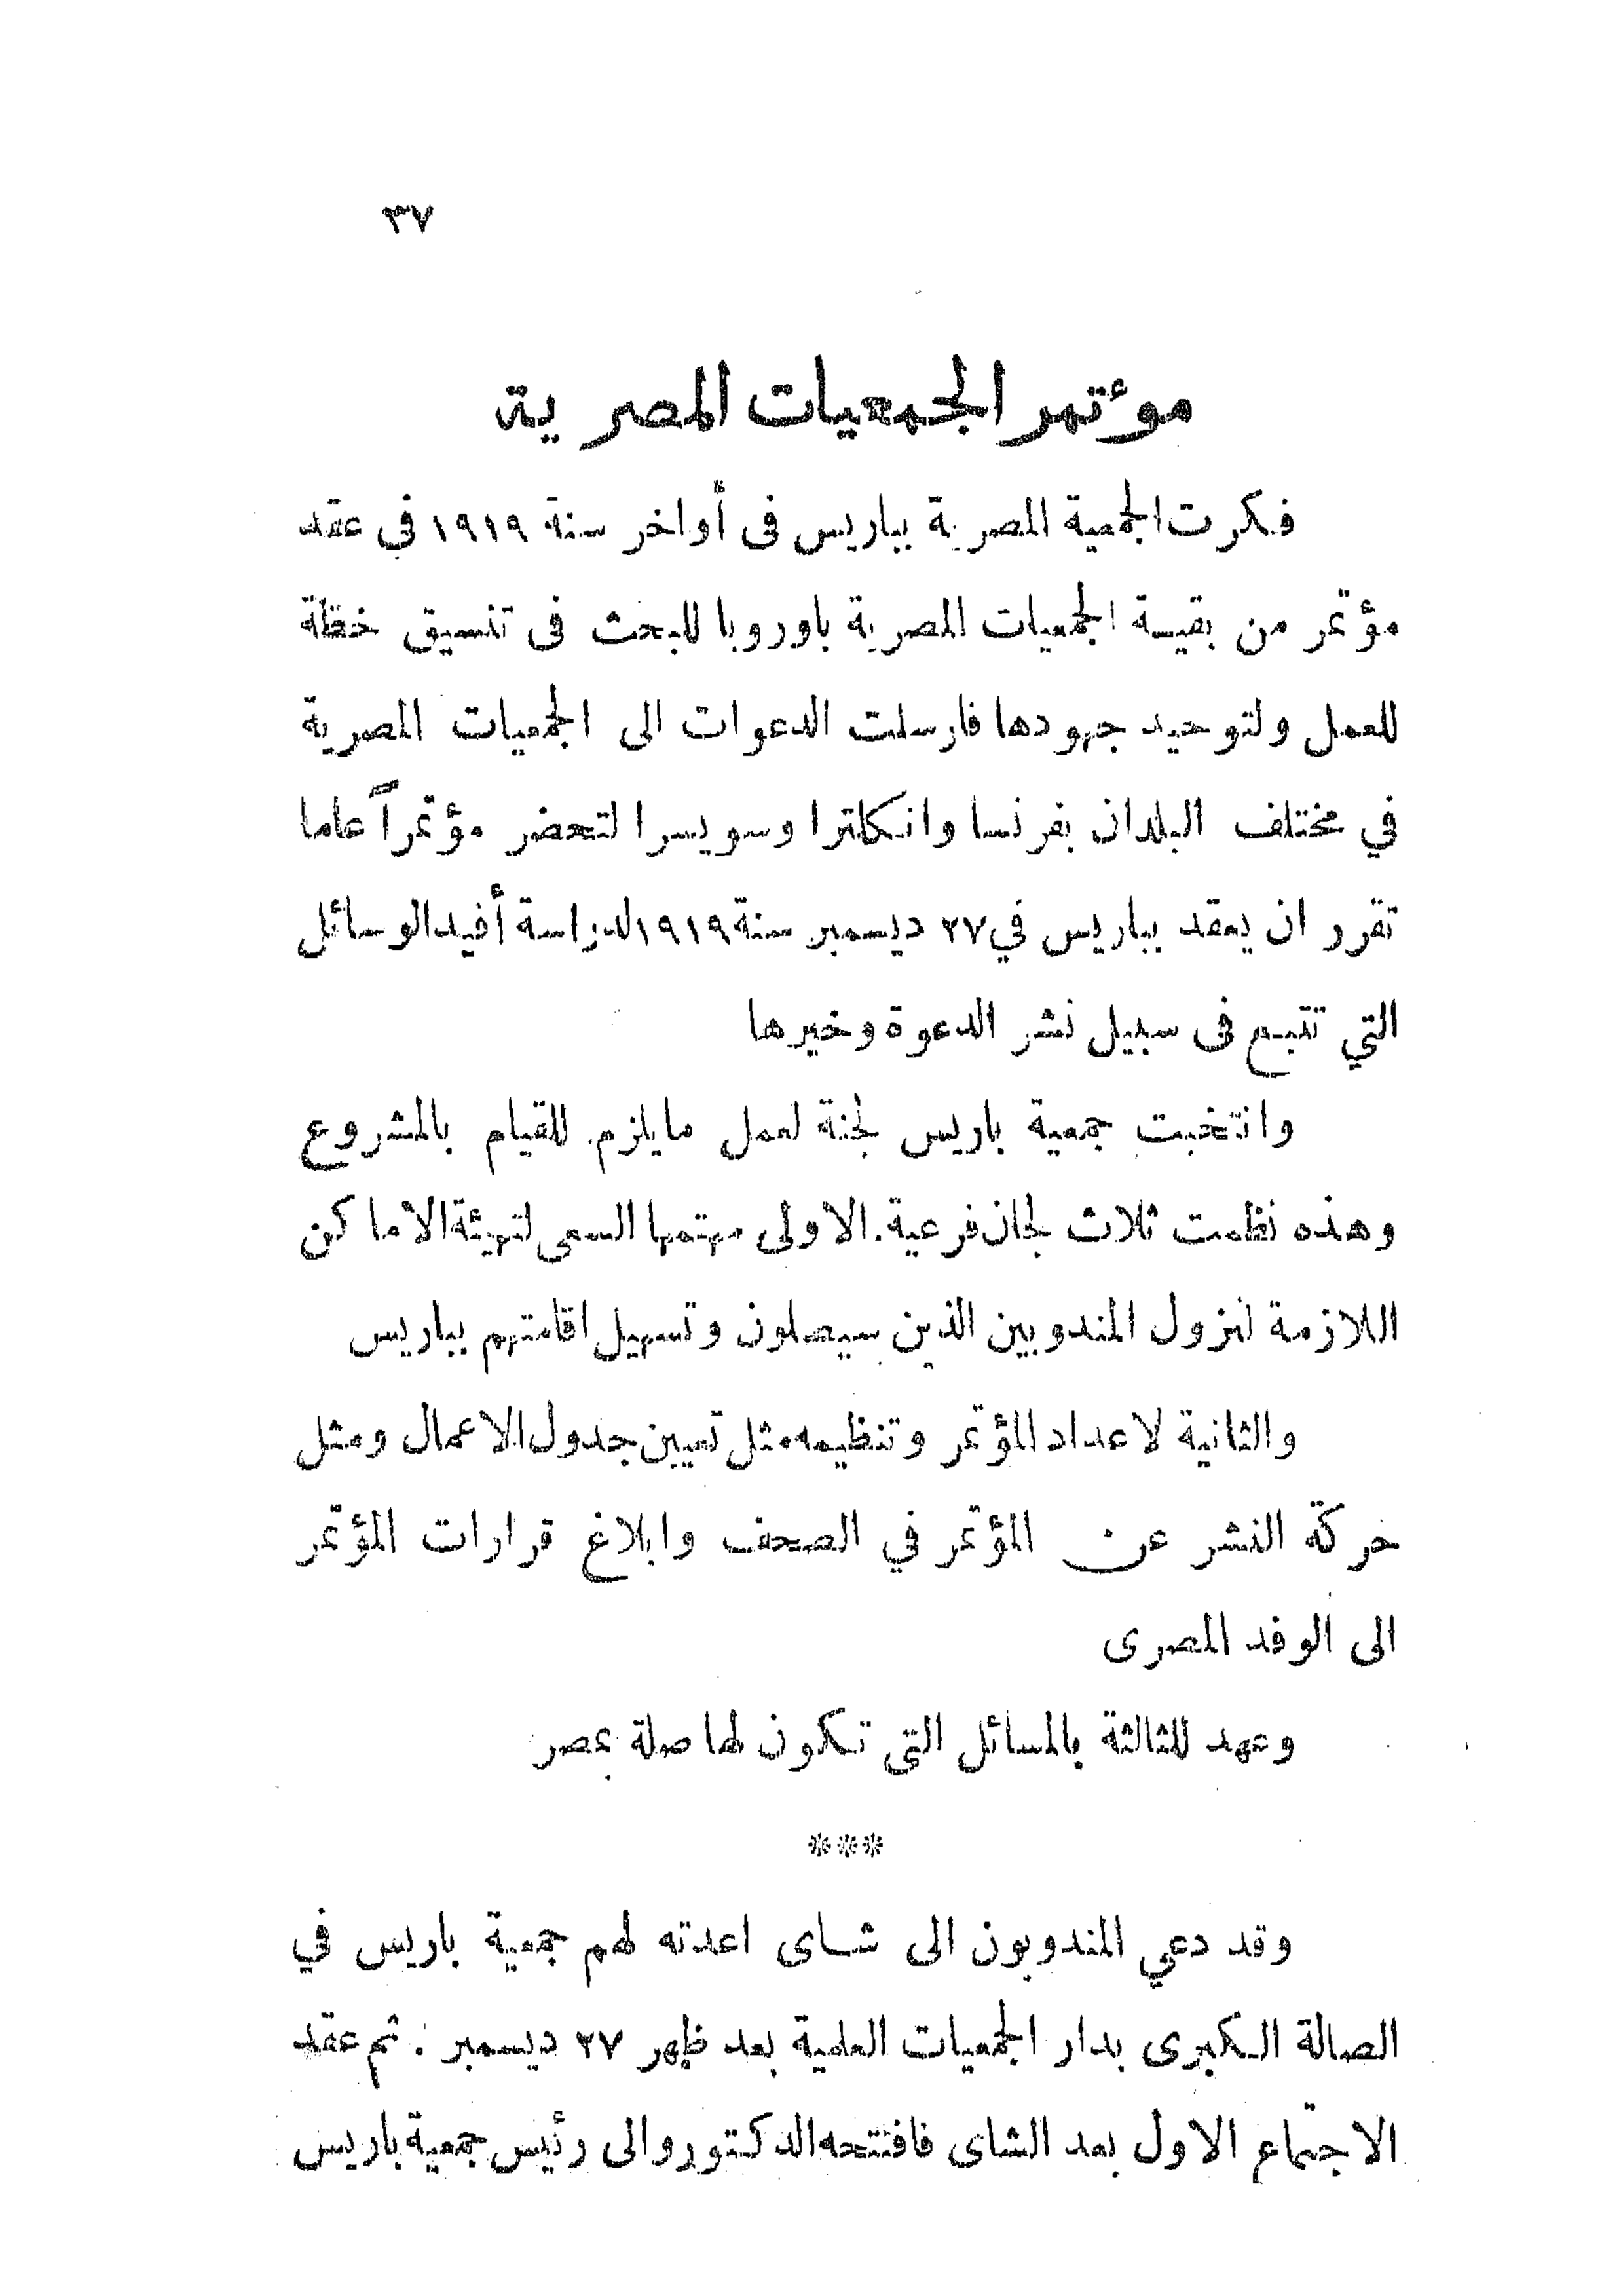 ٣٧
مؤتمر الجمعيات المصرية
فكرت الجمعية المصرية بباريس فى أواخر سنة ١٩١٩ في عقد
مؤتمر من بقية الجمعيات المصرية باوروبا للبحث فى تنسيق خطة
للعمل ولتوحيد جهودها فارسلت الدعوات الى الجمعيات المصرية
في مختلف البلدان بفرنسا وانكلترا وسويسرا لتحضر مؤتمراً عاما
تقرر ان يعقد بباريس في ٢٧ ديسمبر سنة ١٩١٩ لدراسة أفيد الوسائل
التي تتبع فى سبيل نشر الدعوة وخيرها
وانتخبت جمعية باريس لجنة لعمل ما يلزم للقيام بالمشروع
وهذه نظمت ثلاث لجان فرعية. الاولى مهتمها السعى لتهيئة الاماكن
اللازمة لنزول المندوبين الذين سيصلون وتسهيل اقامتهم بباريس
والثانية لاعداد المؤتمر وتنظيمه مثل تعيين جدول الاعمال ومثل
حركة النشر عن المؤتمر في الصحف وابلاغ قرارات المؤتمر
الى الوفد المصرى
وعهد للثالثة بالمسائل التى تكون لها صلة بمصر
***
وقد دعي المندوبون الى شاى اعدته لهم جمعية باريس في
الصالة الكبرى بدار الجمعيات العلمية بعد ظهر ٢٧ ديسمبر . ثم عقد
الاجتماع الاول بعد الشاى فافتتحه الدكتور والى رئيس جمعية باريس